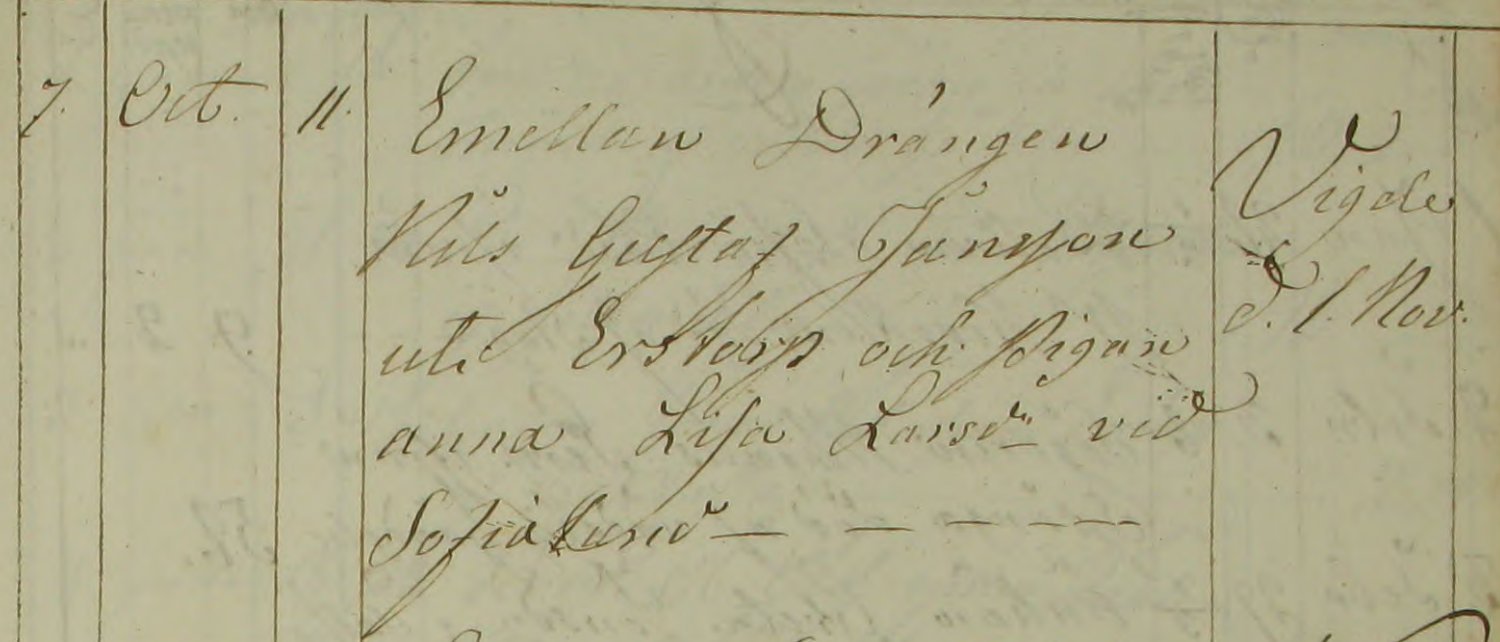 7. Oct. 11. Emellan Drängen
Nils Gustaf Jansson
uti Erstorp och Pigan
anna Lisa Larsdr vid
Sofialund — — — — —
Vigde
d. 1. Nov.